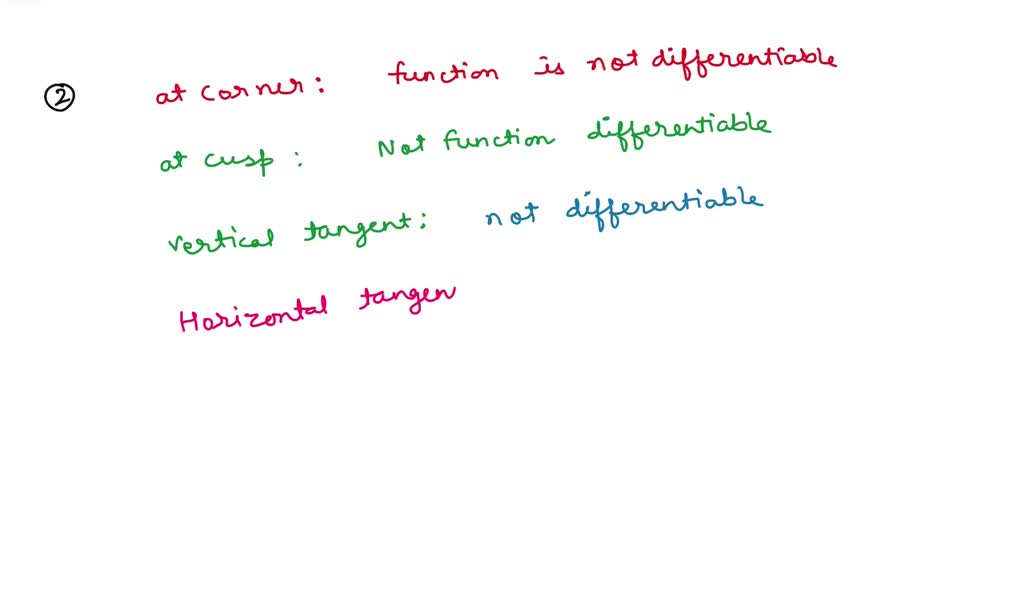 ② at corner : function is not differentiable
at cusp : Not function differentiable
vertical tangent : not differentiable
Horizontal tangen